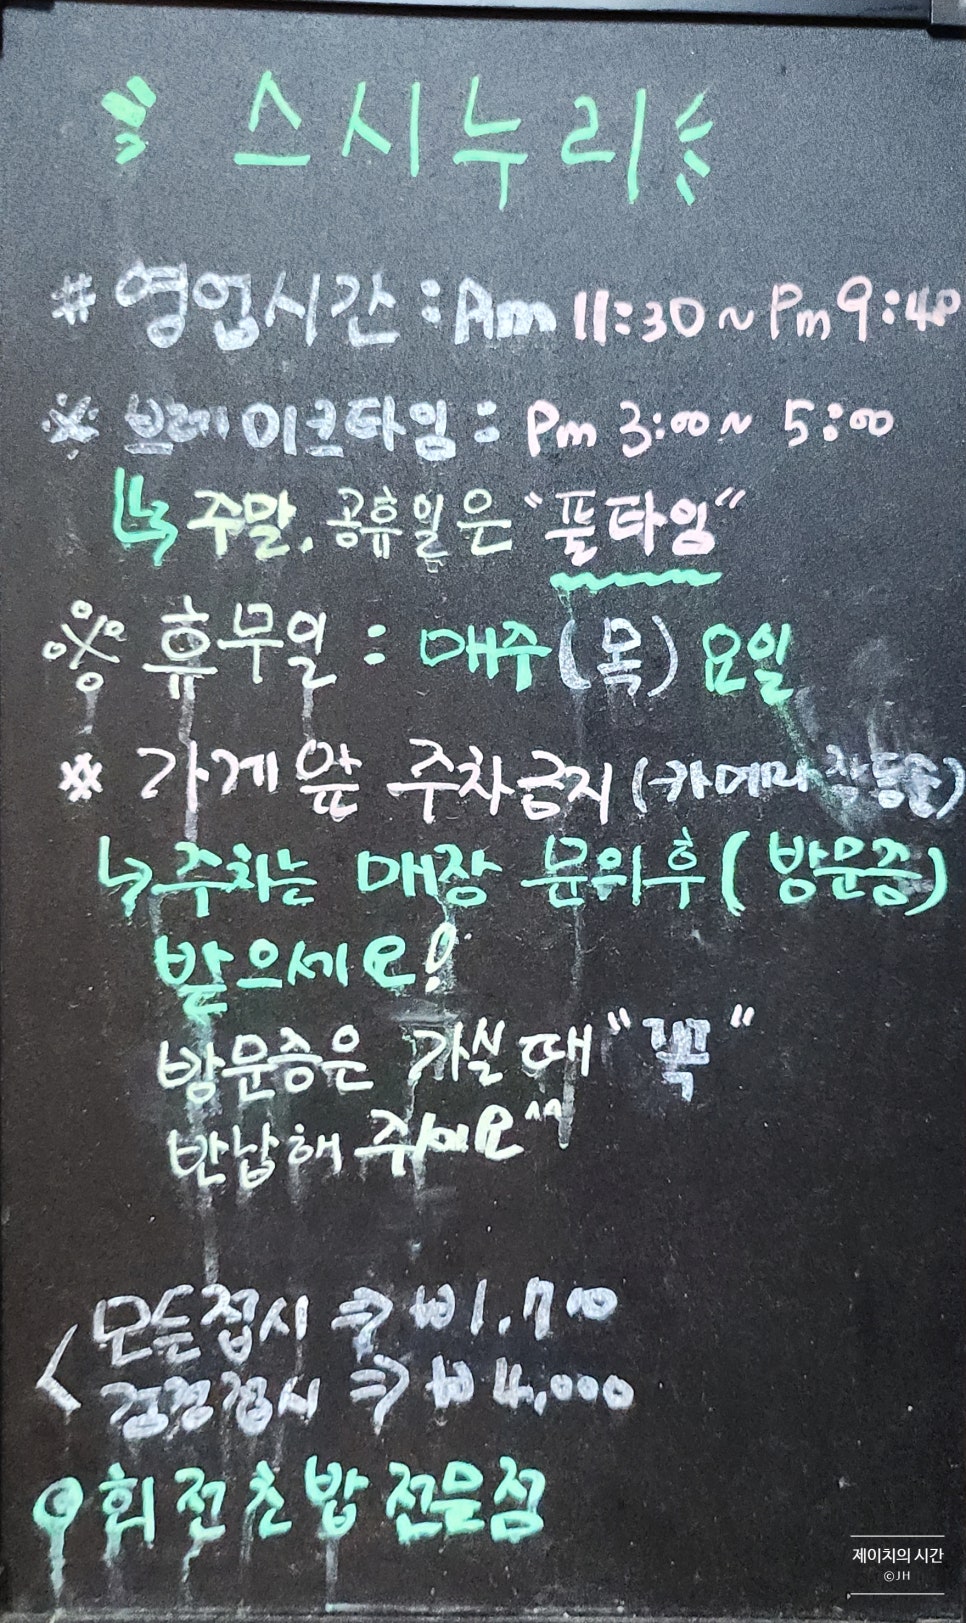 스시누리
# 영업시간 : Am 11:30 ~ Pm 9:40
※ 브레이크타임 : Pm 3:00 ~ 5:00
↳ 주말, 공휴일은 "풀타임"
※ 휴무일 : 매주 (목) 요일
※ 가게 앞 주차금지 (카메라 작동중)
↳ 주차는 매장 문의후 (방문증)
받으세요!
방문증은 가실때 "꼭"
반납해 주세요^^
모든접시 ⇒ ₩1,700
검정접시 ⇒ ₩4,000
회전초밥전문점
제이치의 시간
©JH